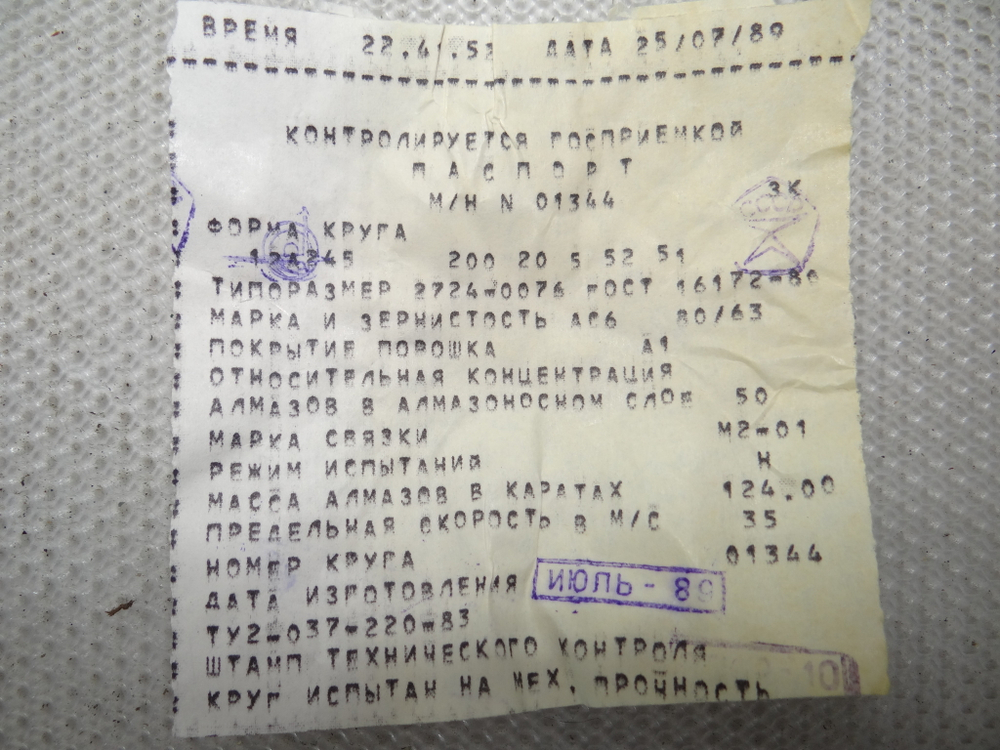 ВРЕМЯ 22.41.51 ДАТА 25/07/89
КОНТРОЛИРУЕТСЯ ГОСПРИЕМКОЙ
П А С П О Р Т
М/Н N 01344
ЗК
СССР
ФОРМА КРУГА
12А245 200 20 5 52 51
ТИПОРАЗМЕР 2724-0076 ГОСТ 16172-80
МАРКА И ЗЕРНИСТОСТЬ АС6 80/63
ПОКРЫТИЕ ПОРОШКА А1
ОТНОСИТЕЛЬНАЯ КОНЦЕНТРАЦИЯ
АЛМАЗОВ В АЛМАЗОНОСНОМ СЛОЕ 50
МАРКА СВЯЗКИ М2-01
РЕЖИМ ИСПЫТАНИЙ Н
МАССА АЛМАЗОВ В КАРАТАХ 124.00
ПРЕДЕЛЬНАЯ СКОРОСТЬ В М/С 35
НОМЕР КРУГА 01344
ДАТА ИЗГОТОВЛЕНИЯ ИЮЛЬ - 89
ТУ2-037-220-83
ШТАМП ТЕХНИЧЕСКОГО КОНТРОЛЯ
10
КРУГ ИСПЫТАН НА МЕХ. ПРОЧНОСТЬ